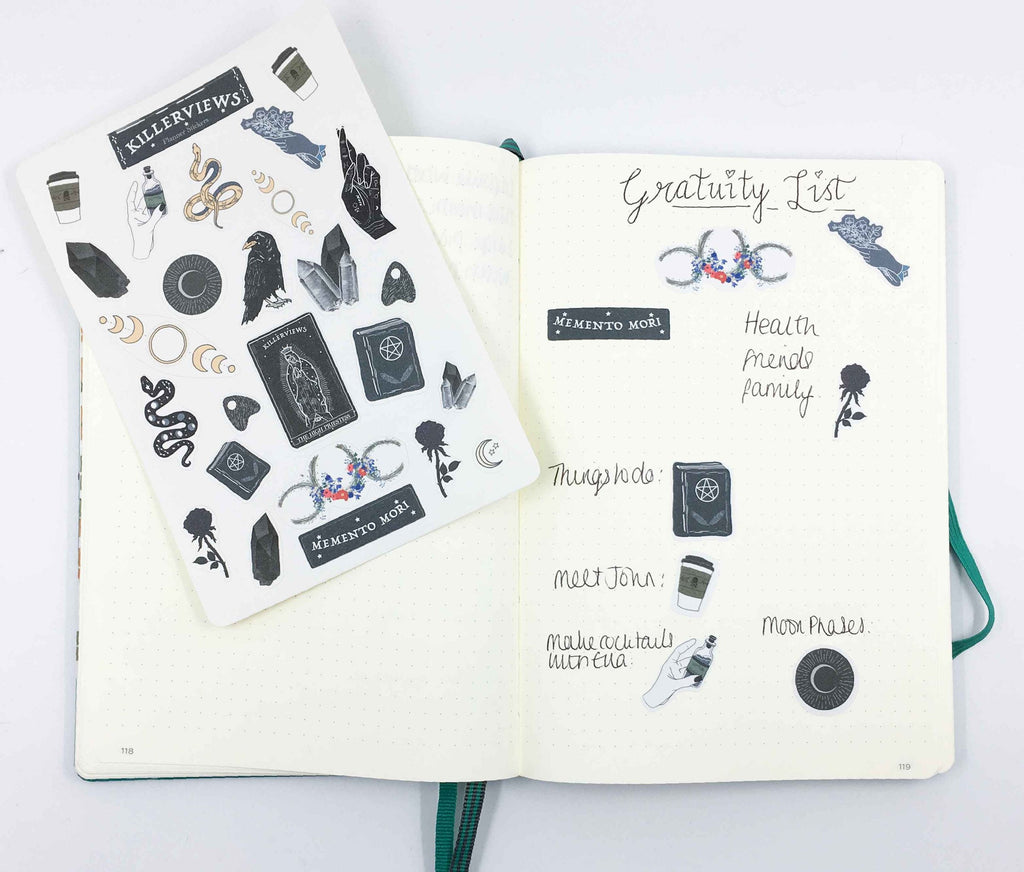 KILLERVIEWS
Planner Stickers
KILLERVIEWS
THE HIGH PRIESTESS
MEMENTO MORI
118
Gratuity List
MEMENTO MORI
Health
friends
family.
Things to do:
Meet John:
Make cocktails
with Ella:
Moon Phases:
119